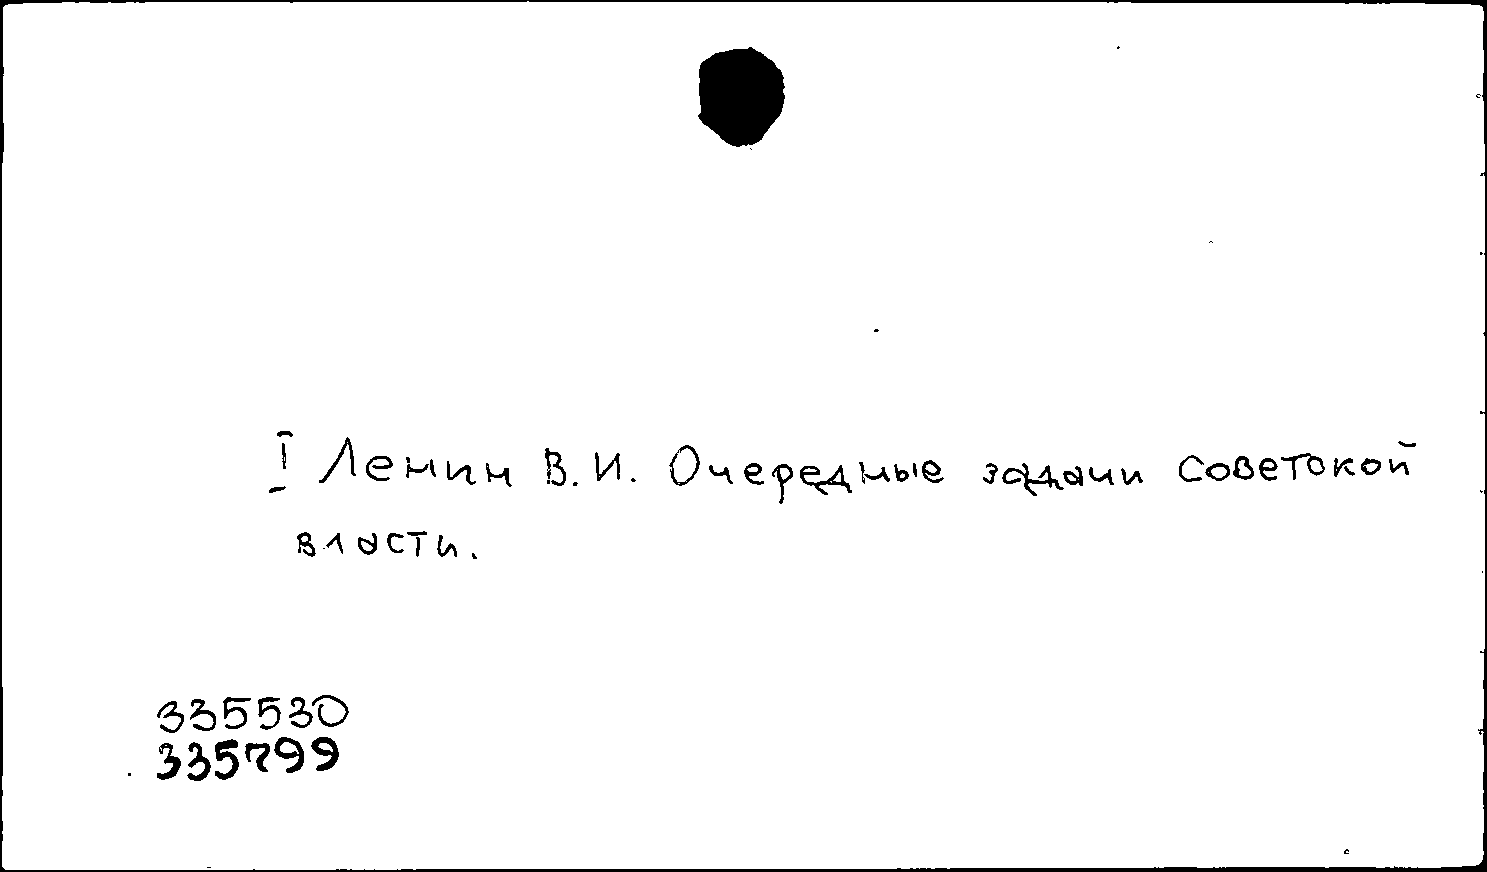 I Ленин В.И. Очередные задачи советской
власти.
335530
335799